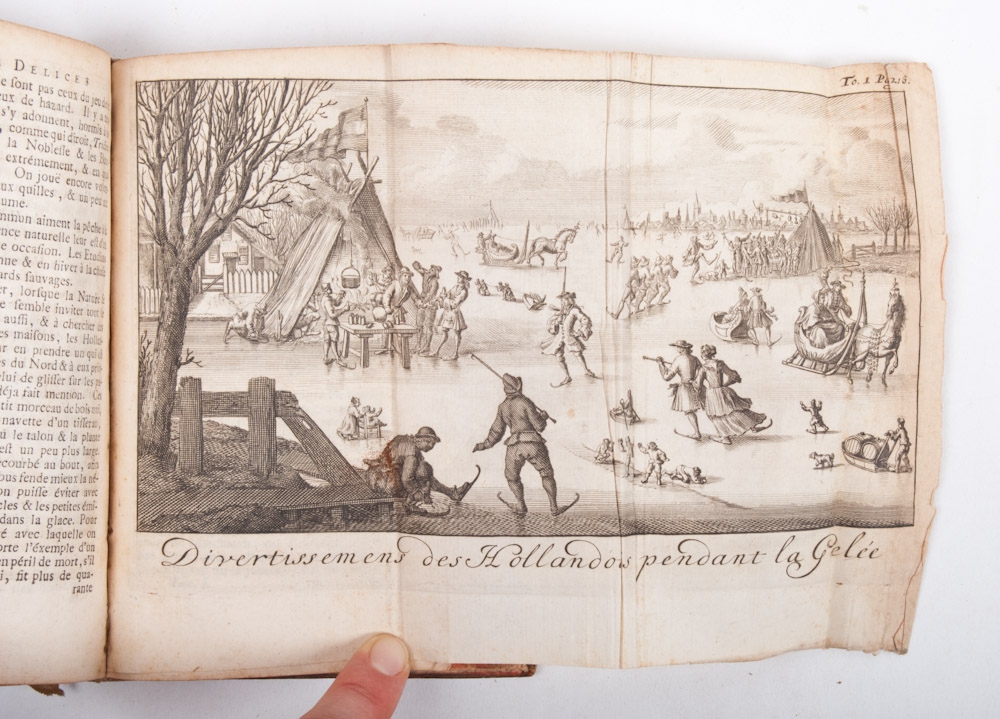 DELICES
e sont pas ceux du jeu de
eux de hazard. Il y a
s'y adonnent, hormis
comme qui diroit,
la Noblesse & les
extrémement, & en
On jouë encore
ux quilles, & un peu
ume.
mmun aiment la pêche
ence naturelle leur est
e occasion. Les Etudi
nne & en hiver à la
ards sauvages.
er, lorsque la Nature
e semble inviter tout le
aussi, & à chercher
es maisons, les Hol
ur en prendre un qui
s du Nord & à eux
elui de glisser sur les
déja fait mention. Ce
tit morceau de bois
navette d'un tisseran
u le talon & la plante
est un peu plus large
ecourbé au bout, afin
ous fende mieux la né-
on puisse éviter avec
cles & les petites émi-
dans la glace. Pour
té avec laquelle on
orte l'éxemple d'un
en péril de mort, s'il
i, fit plus de qua-
rante
To. 1 Pag
Divertissemens des Hollandois pendant la Gelée